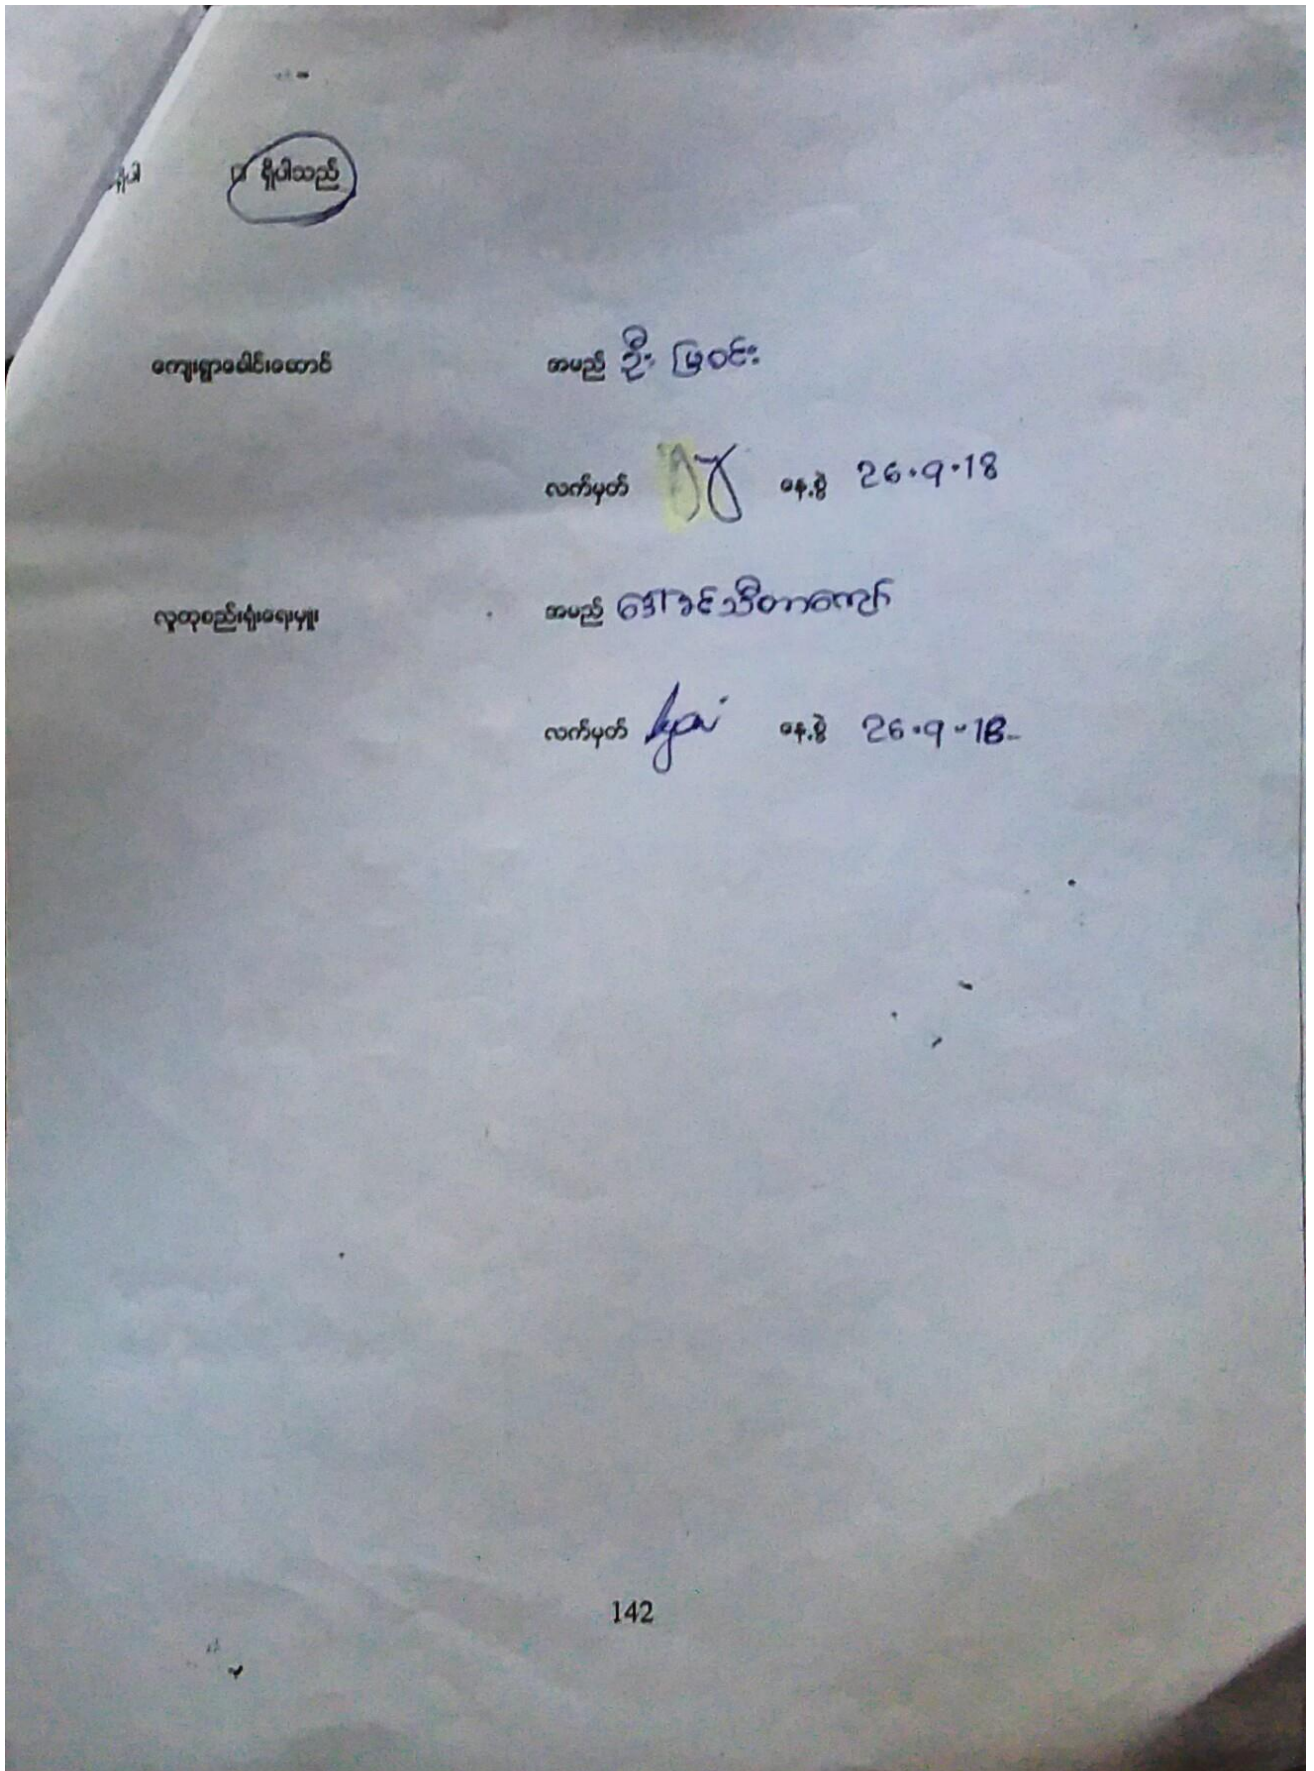 ရှိပါ □ ရှိပါသည်
ကျေးရွာခေါင်းဆောင် အမည် ဦး မြဝင်း
လက်မှတ် နေ့စွဲ 26.9.18
လူထုစည်းရုံးရေးမှူး အမည် ဒေါ်ခင်သီတာကျော်
လက်မှတ် kyaw နေ့စွဲ 26.9-18
142